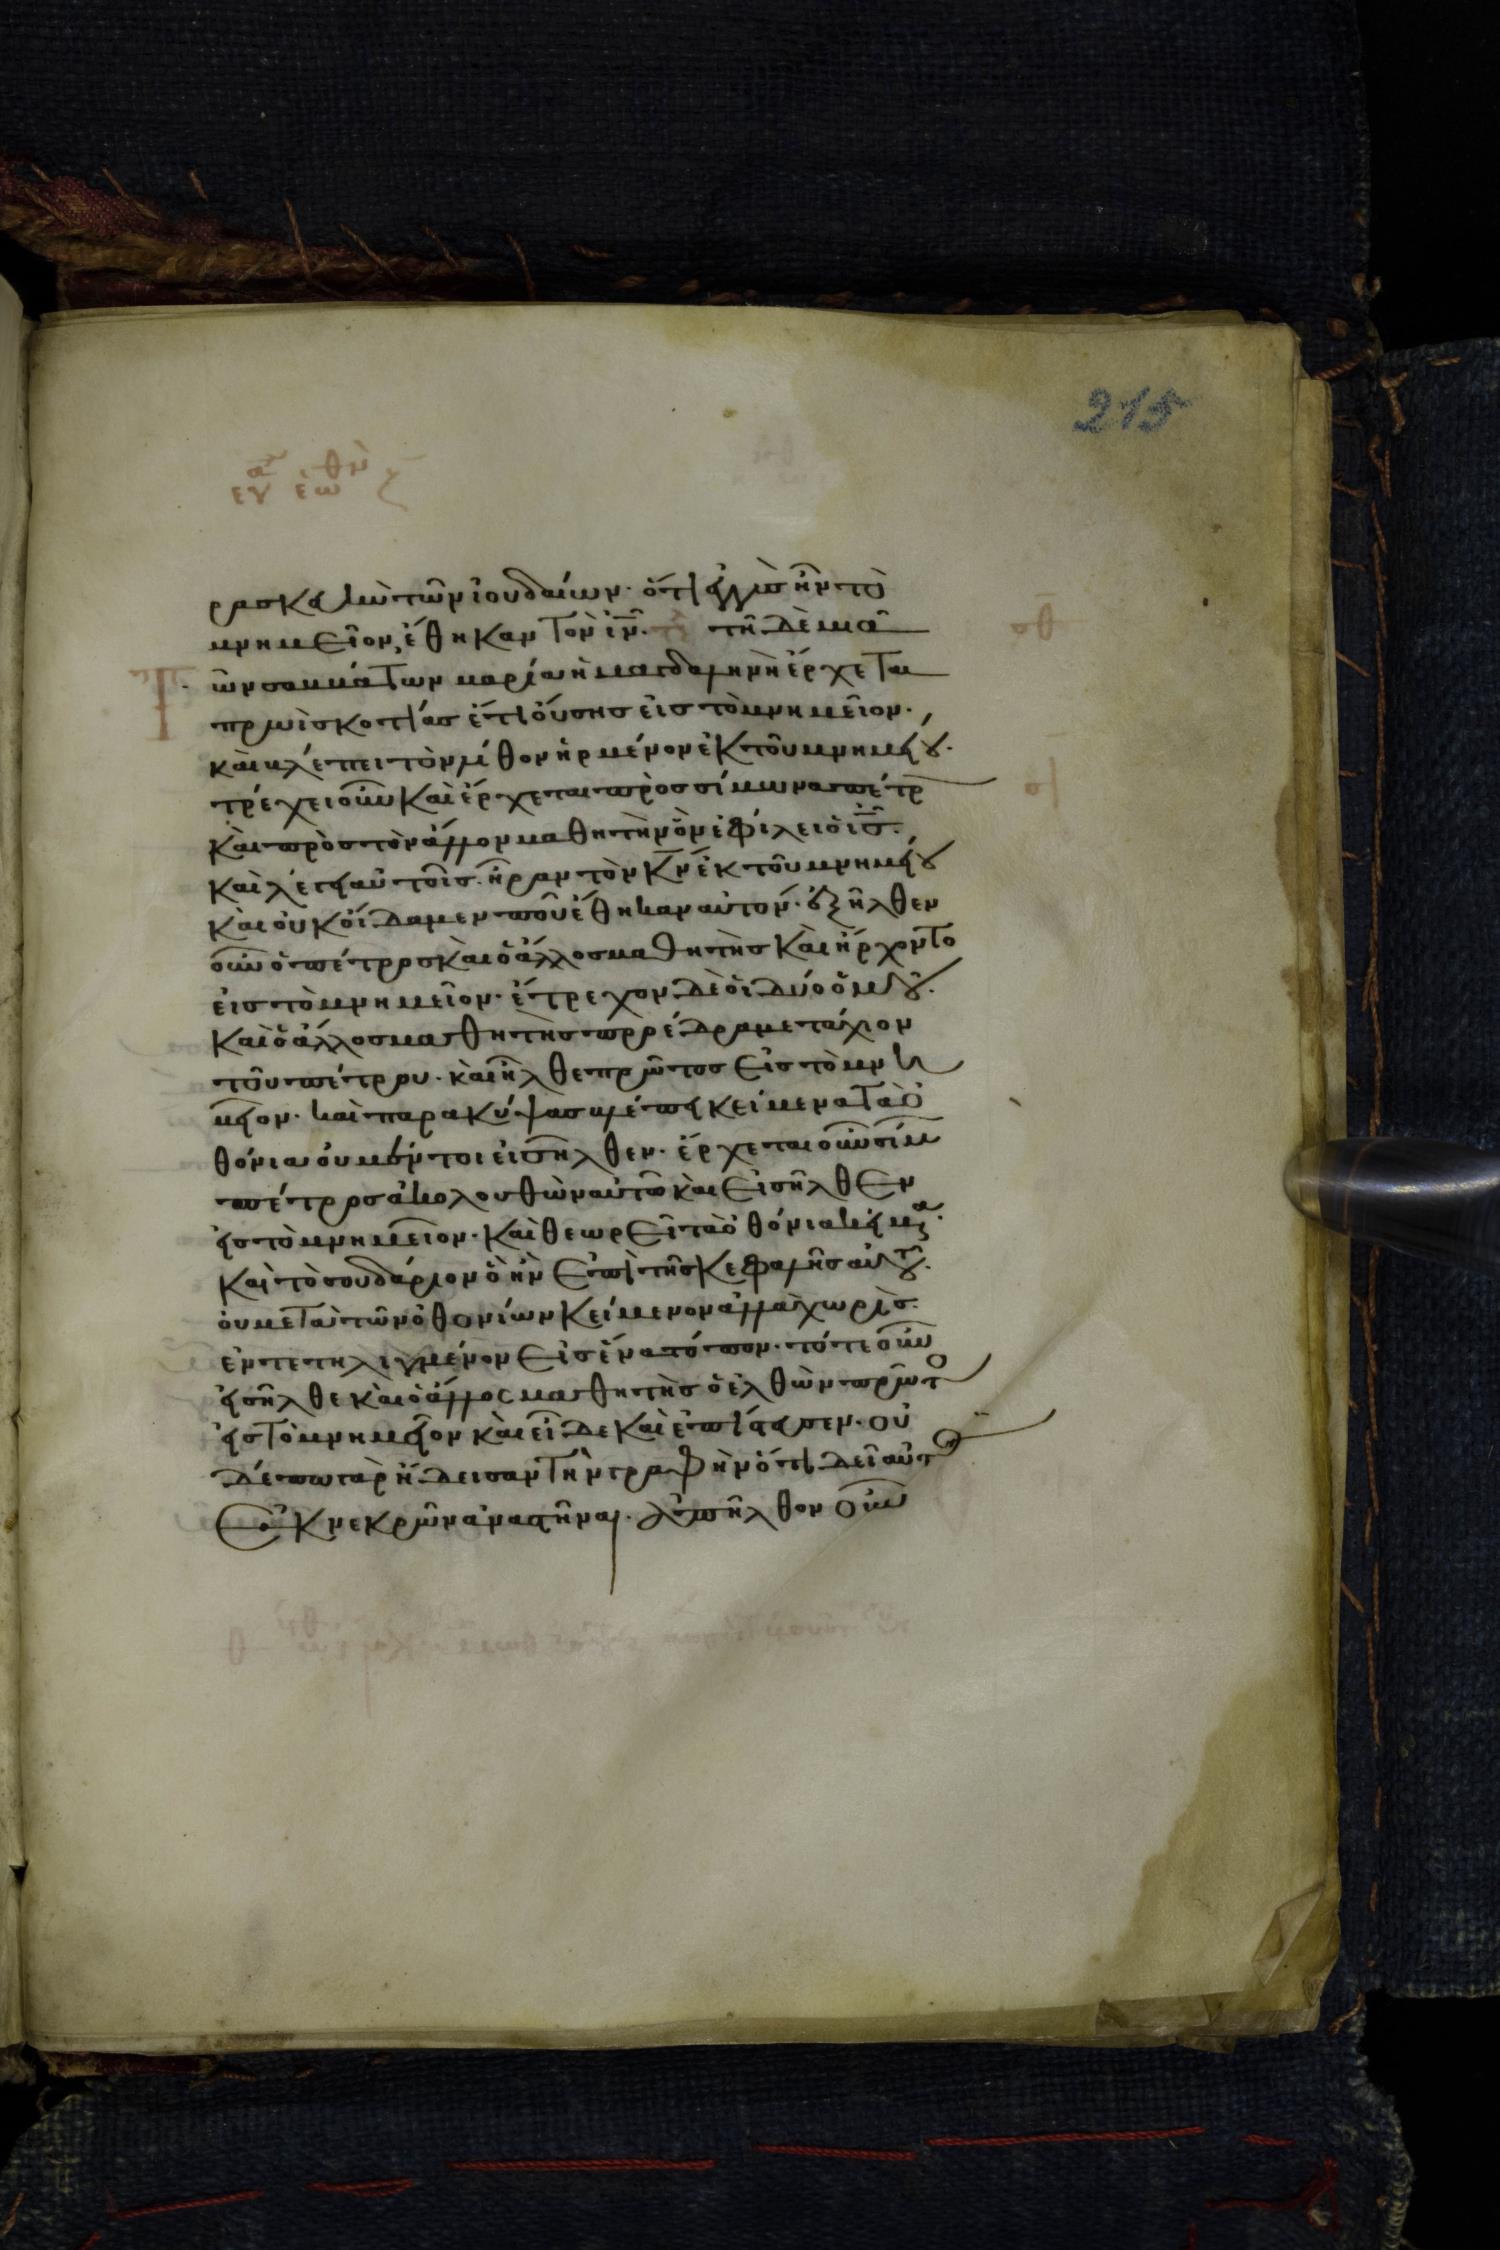 215
ευα εωθν ζ
ρασκευὴν τῶν ἰουδαίων· ὅτι ἐγγὺς ἦν τὸ
μνημεῖον, ἔθηκαν τὸν ιν̅. τῆ δὲ μιᾶ
τῶν σαββάτων μαρία ἡ μαγδαληνὴ ἔρχεται
πρωὶ σκοτίας ἔτι οὔσης εἰς τὸ μνημεῖον·
καὶ βλέπει τὸν λίθον ἠρμένον ἐκ τοῦ μνημείου·
τρέχει οὖν καὶ ἔρχεται πρὸς σίμωνα πέτρ
καὶ πρὸς τὸν ἄλλον μαθητὴν ὃν ἐφίλει ὁ ις̅.
καὶ λέγει αὐτοῖς· ἦραν τὸν κν̅ ἐκ τοῦ μνημείου
καὶ οὐκ οἴδαμεν ποῦ ἔθηκαν αὐτόν· ἐξῆλθεν
οὖν ὁ πέτρος καὶ ὁ ἄλλος μαθητὴς καὶ ἤρχοντο
εἰς τὸ μνημεῖον· ἔτρεχον δὲ οἱ δύο ὁμοῦ.
καὶ ὁ ἄλλος μαθητὴς προέδραμε τάχιον
τοῦ πέτρου· καὶ ἦλθε πρῶτος εἰς τὸ μνη
μεῖον· καὶ παρακύψας βλέπει κείμενα τὰ ὀ
θόνια οὐ μέντοι εἰσῆλθεν· ἔρχεται οὖν σίμ
πέτρος ἀκολουθῶν αὐτῶ καὶ εἰσῆλθεν
εἰς τὸ μνημεῖον· καὶ θεωρεῖ τὰ ὀθόνια κείμενα·
καὶ τὸ σουδάριον ὃ ἦν ἐπὶ τῆς κεφαλῆς αὐτοῦ.
οὐ μετὰ τῶν ὀθονίων κείμενον ἀλλὰ χωρὶς·
ἐντετηλιγμένον εἰς ἕνα τόπον· τότε οὖν
εἰσῆλθε καὶ ὁ ἄλλος μαθητὴς ὁ ἐλθὼν πρῶτο
εἰς τὸ μνημεῖον καὶ εἶδε καὶ ἐπίστευσεν· οὐ
δέπω γὰρ ἤδεισαν τὴν γραφὴν ὅτι δεῖ αὐτὸν
ἐκ νεκρῶν ἀναστῆναι. ἀπῆλθον οὖν